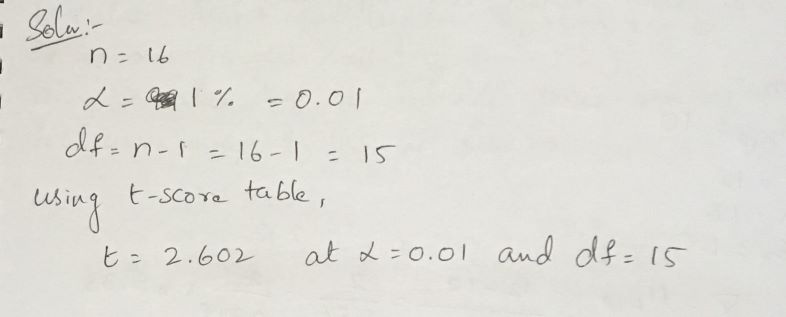 Solu:-
n = 16
α = 1% = 0.01
df = n-1 = 16-1 = 15
using t-score table,
t = 2.602 at α = 0.01 and df = 15